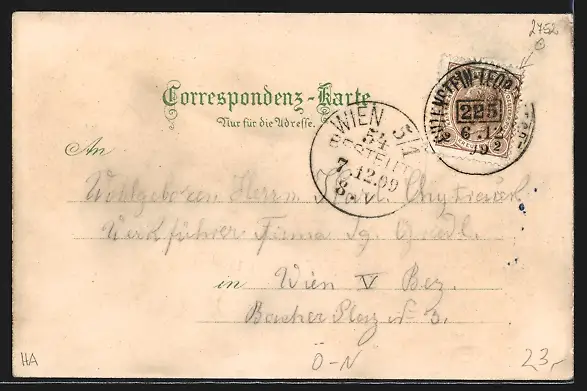 2752
Correspondenz-Karte
Nur für die Adresse.
GUTENSTEIN-LEOB
225
6 12
99
WIEN 5/1
54
BESTELLT
7.12.99
8. V
An
Wohlgeboren Herrn Karl
Werkführer Firma
in Wien V Bez.
Bacher Platz No 3.
HA
Ö-N
23,-